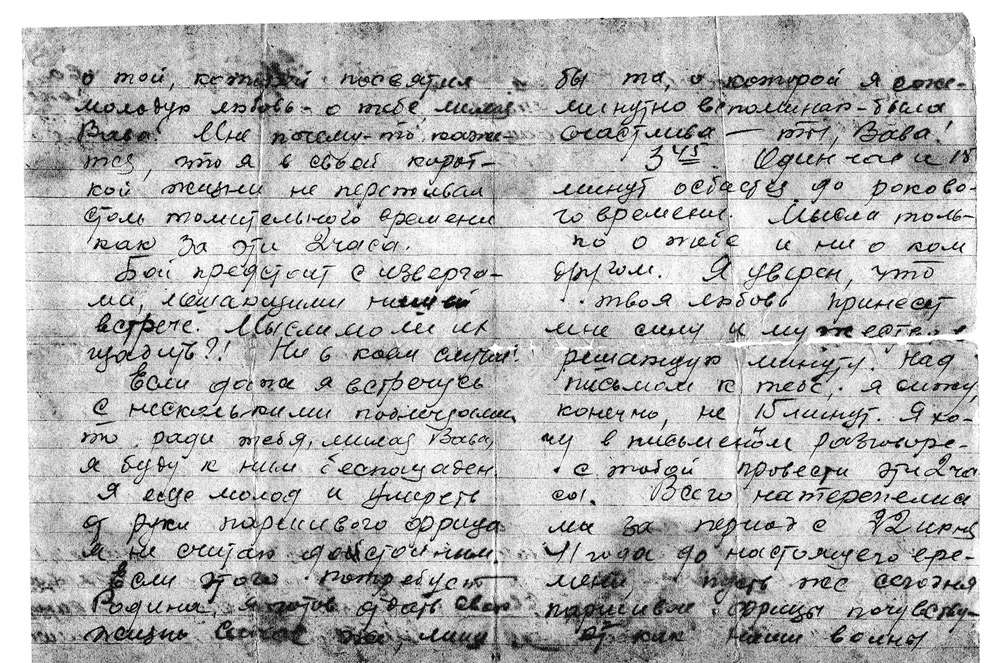 о той, которой посвятил
молодую любовь - о тебе, милая
Вава! Мне почему-то кажи-
тся, что я в своей корот-
кой жизни не переживал
столь томительного времени
как за эти 2 часа.
Бой предстоит с изверга-
ми, мешающими нашей
встрече. Мыслимо ли их
щадить?! Ни в коем случае!
Если даже я встречусь
с несколькими подлецами,
то ради тебя, милая Вава,
я буду к ним беспощаден.
Я еще молод и умереть
от руки паршивого фрица
я не считаю достойным
Если этого потребует
Родина, я готов отдать свою
жизнь
бы та, о которой я еже-
минутно вспоминаю - была
счастлива — ты, Вава!
3 45. Один час и 15
минут остается до роково-
го времени. Мысла толь-
ко о тебе и ни о ком
другом. Я уверен, что
твоя любовь принесет
мне силу и мужество в
решающую минуту. Над
письмом к тебе, я сижу,
конечно, не 15 минут. Я хо-
чу в письменом разговоре
с тобой провести эти 2 ча
са. Всего натерпелись
мы за период с 22 июня
41 года до настоящего вре-
мени пусть же сегодня
паршивые фрицы почувству-
ют как наши воины